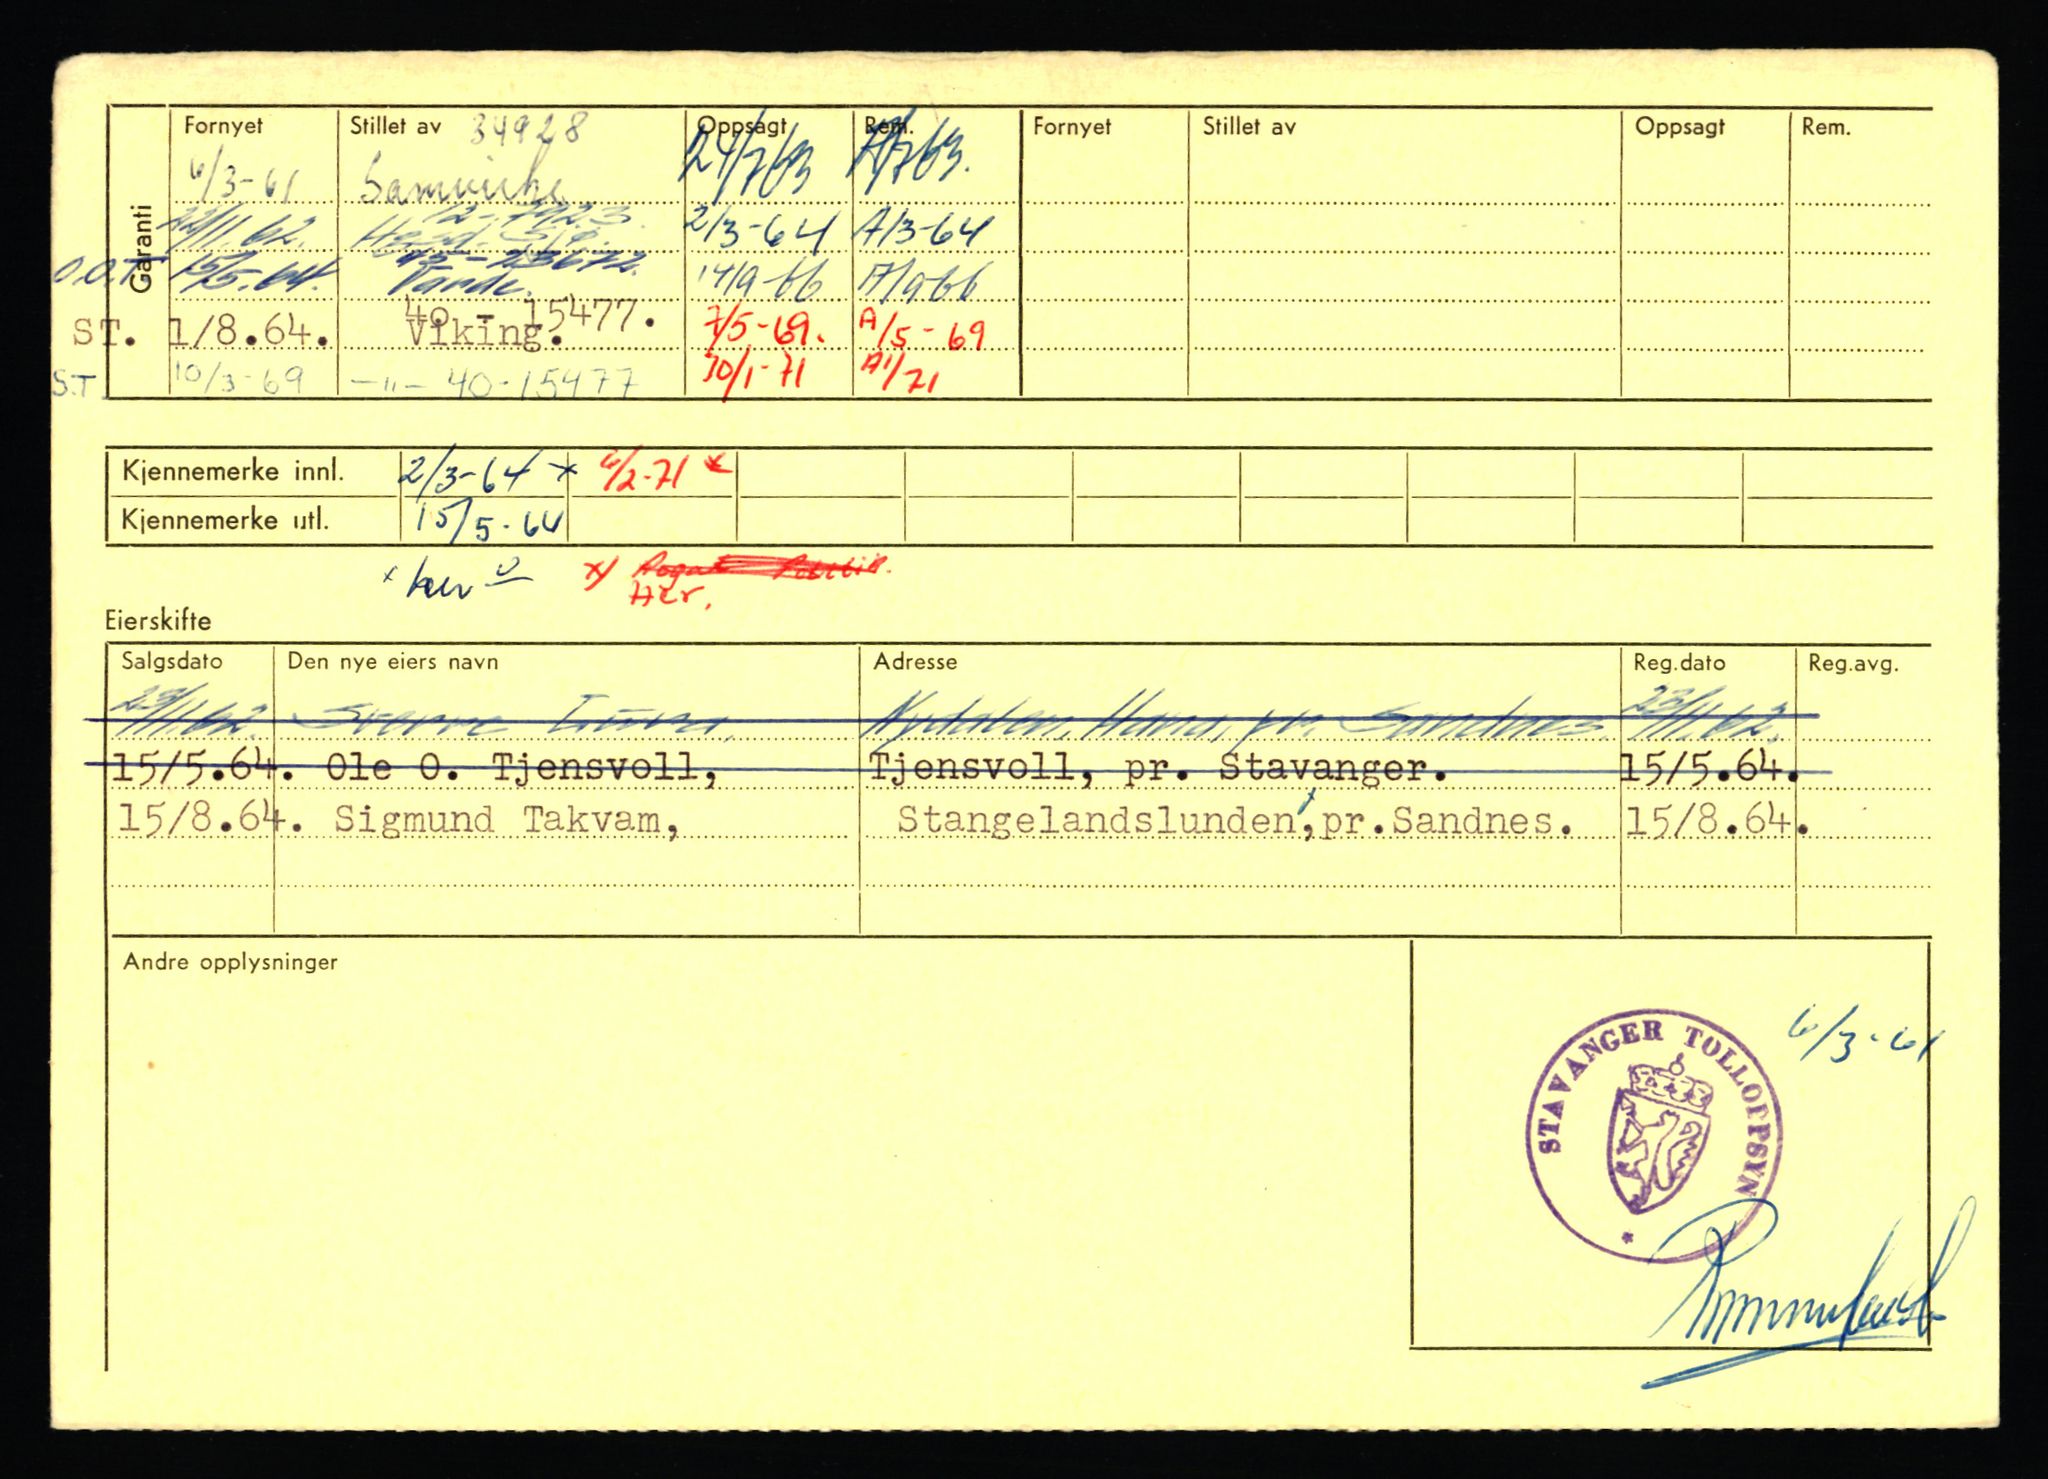 Garanti
Fornyet Stillet av 34928 Oppsagt Rem. Fornyet Stillet av Oppsagt Rem.
6/3-61 Samvirke 24/7 63 /7 63.
22/11.62. 2/3-64 A/3-64
O.O.T 15/5.64. 14/9-66 A/9-66
ST. 1/8.64. 40 - 15477. Viking. 7/5-69. A/5-69
S.T. 10/3-69 —"— 40-15477 30/1-71 A1/71
Kjennemerke innl. 2/3-64 x 4/2-71 x
Kjennemerke utl. 15/5-64
x her x) Her.
Eierskifte
Salgsdato Den nye eiers navn Adresse Reg.dato Reg.avg.
23/11.62. Sverre Nydalen, Hana, pr. Sandnes. 23/11.62.
15/5.64. Ole O. Tjensvoll, Tjensvoll, pr. Stavanger. 15/5.64.
15/8.64. Sigmund Takvam, Stangelandslunden, pr.Sandnes. 15/8.64.
Andre opplysninger
6/3-61
STAVANGER TOLLOPPSYN